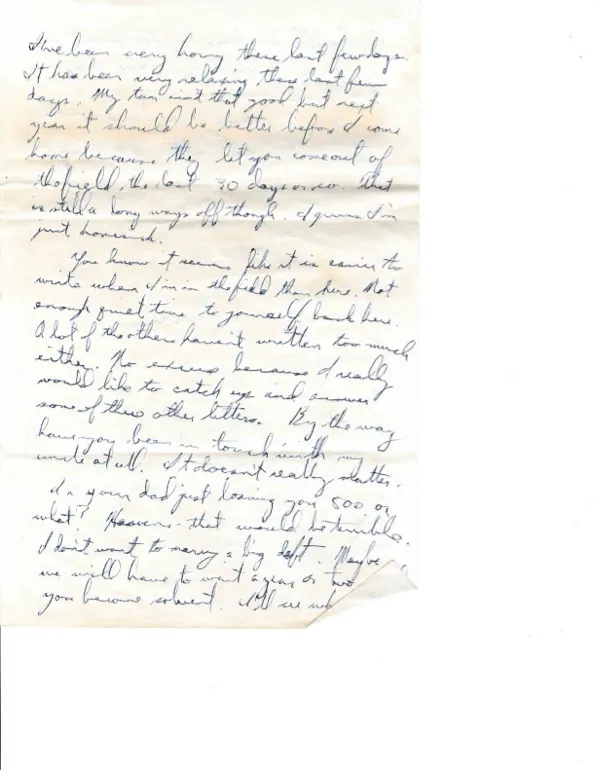 I've been very horny these last few days.
It has been very relaxing these last few
days. My tan isn't that good but next
year it should be better before I come
home because they let you come out of
the field the last 30 days or so. That
is still a long ways off though. I guess I'm
just homesick.
You know it seems like it is easier to
write when I'm in the field than here. Not
enough quiet time to yourself back here.
A lot of the others haven't written too much
either. No excuse because I really
would like to catch up and answer
some of these other letters. By the way
have you been in touch with my
uncle at all. It doesn't really matter.
Is your dad just loaning you 800 or
what? Heavens that would be terrible.
I don't want to marry a big debt. Maybe
we will have to wait a year or two
you become solvent. I'll see